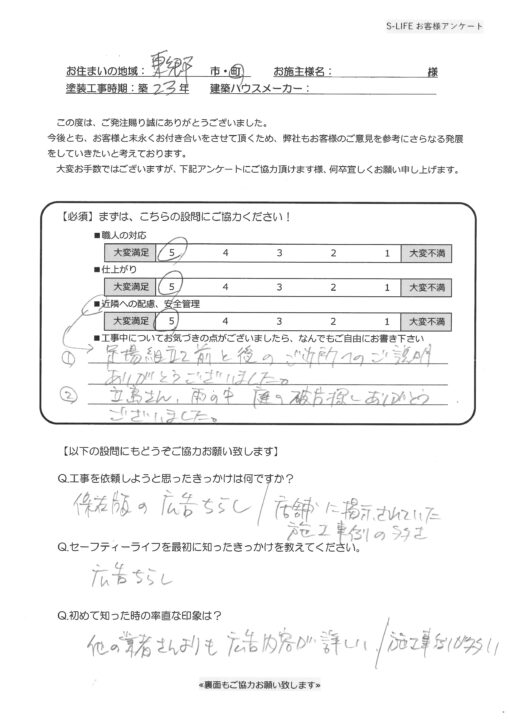 S-LIFE お客様アンケート
お住まいの地域：東郷 市・町 お施主様名： 様
塗装工事時期：築 23 年 建築ハウスメーカー：
この度は、ご発注賜り誠にありがとうございました。
今後とも、お客様と末永くお付き合いをさせて頂くため、弊社もお客様のご意見を参考にさらなる発展
をしていきたいと考えております。
大変お手数ではございますが、下記アンケートにご協力頂けます様、何卒宜しくお願い申し上げます。
【必須】まずは、こちらの設問にご協力ください！
■職人の対応
大変満足 5 4 3 2 1 大変不満
■仕上がり
大変満足 5 4 3 2 1 大変不満
■近隣への配慮、安全管理
大変満足 5 4 3 2 1 大変不満
■工事中についてお気づきの点がございましたら、なんでもご自由にお書き下さい
① 足場組立て前と後のご近所へのご説明
ありがとうございました。
② 立島さん、雨の中 庭の破片探しありがとう
ございました。
【以下の設問にもどうぞご協力お願い致します】
Q.工事を依頼しようと思ったきっかけは何ですか？
保存版の広告ちらし / 店舗に掲示されていた
施工事例の多さ
Q.セーフティーライフを最初に知ったきっかけを教えてください。
広告ちらし
Q.初めて知った時の率直な印象は？
他の業者さんよりも 広告内容が詳しい / 施工事例が多い
≪裏面もご協力お願い致します≫